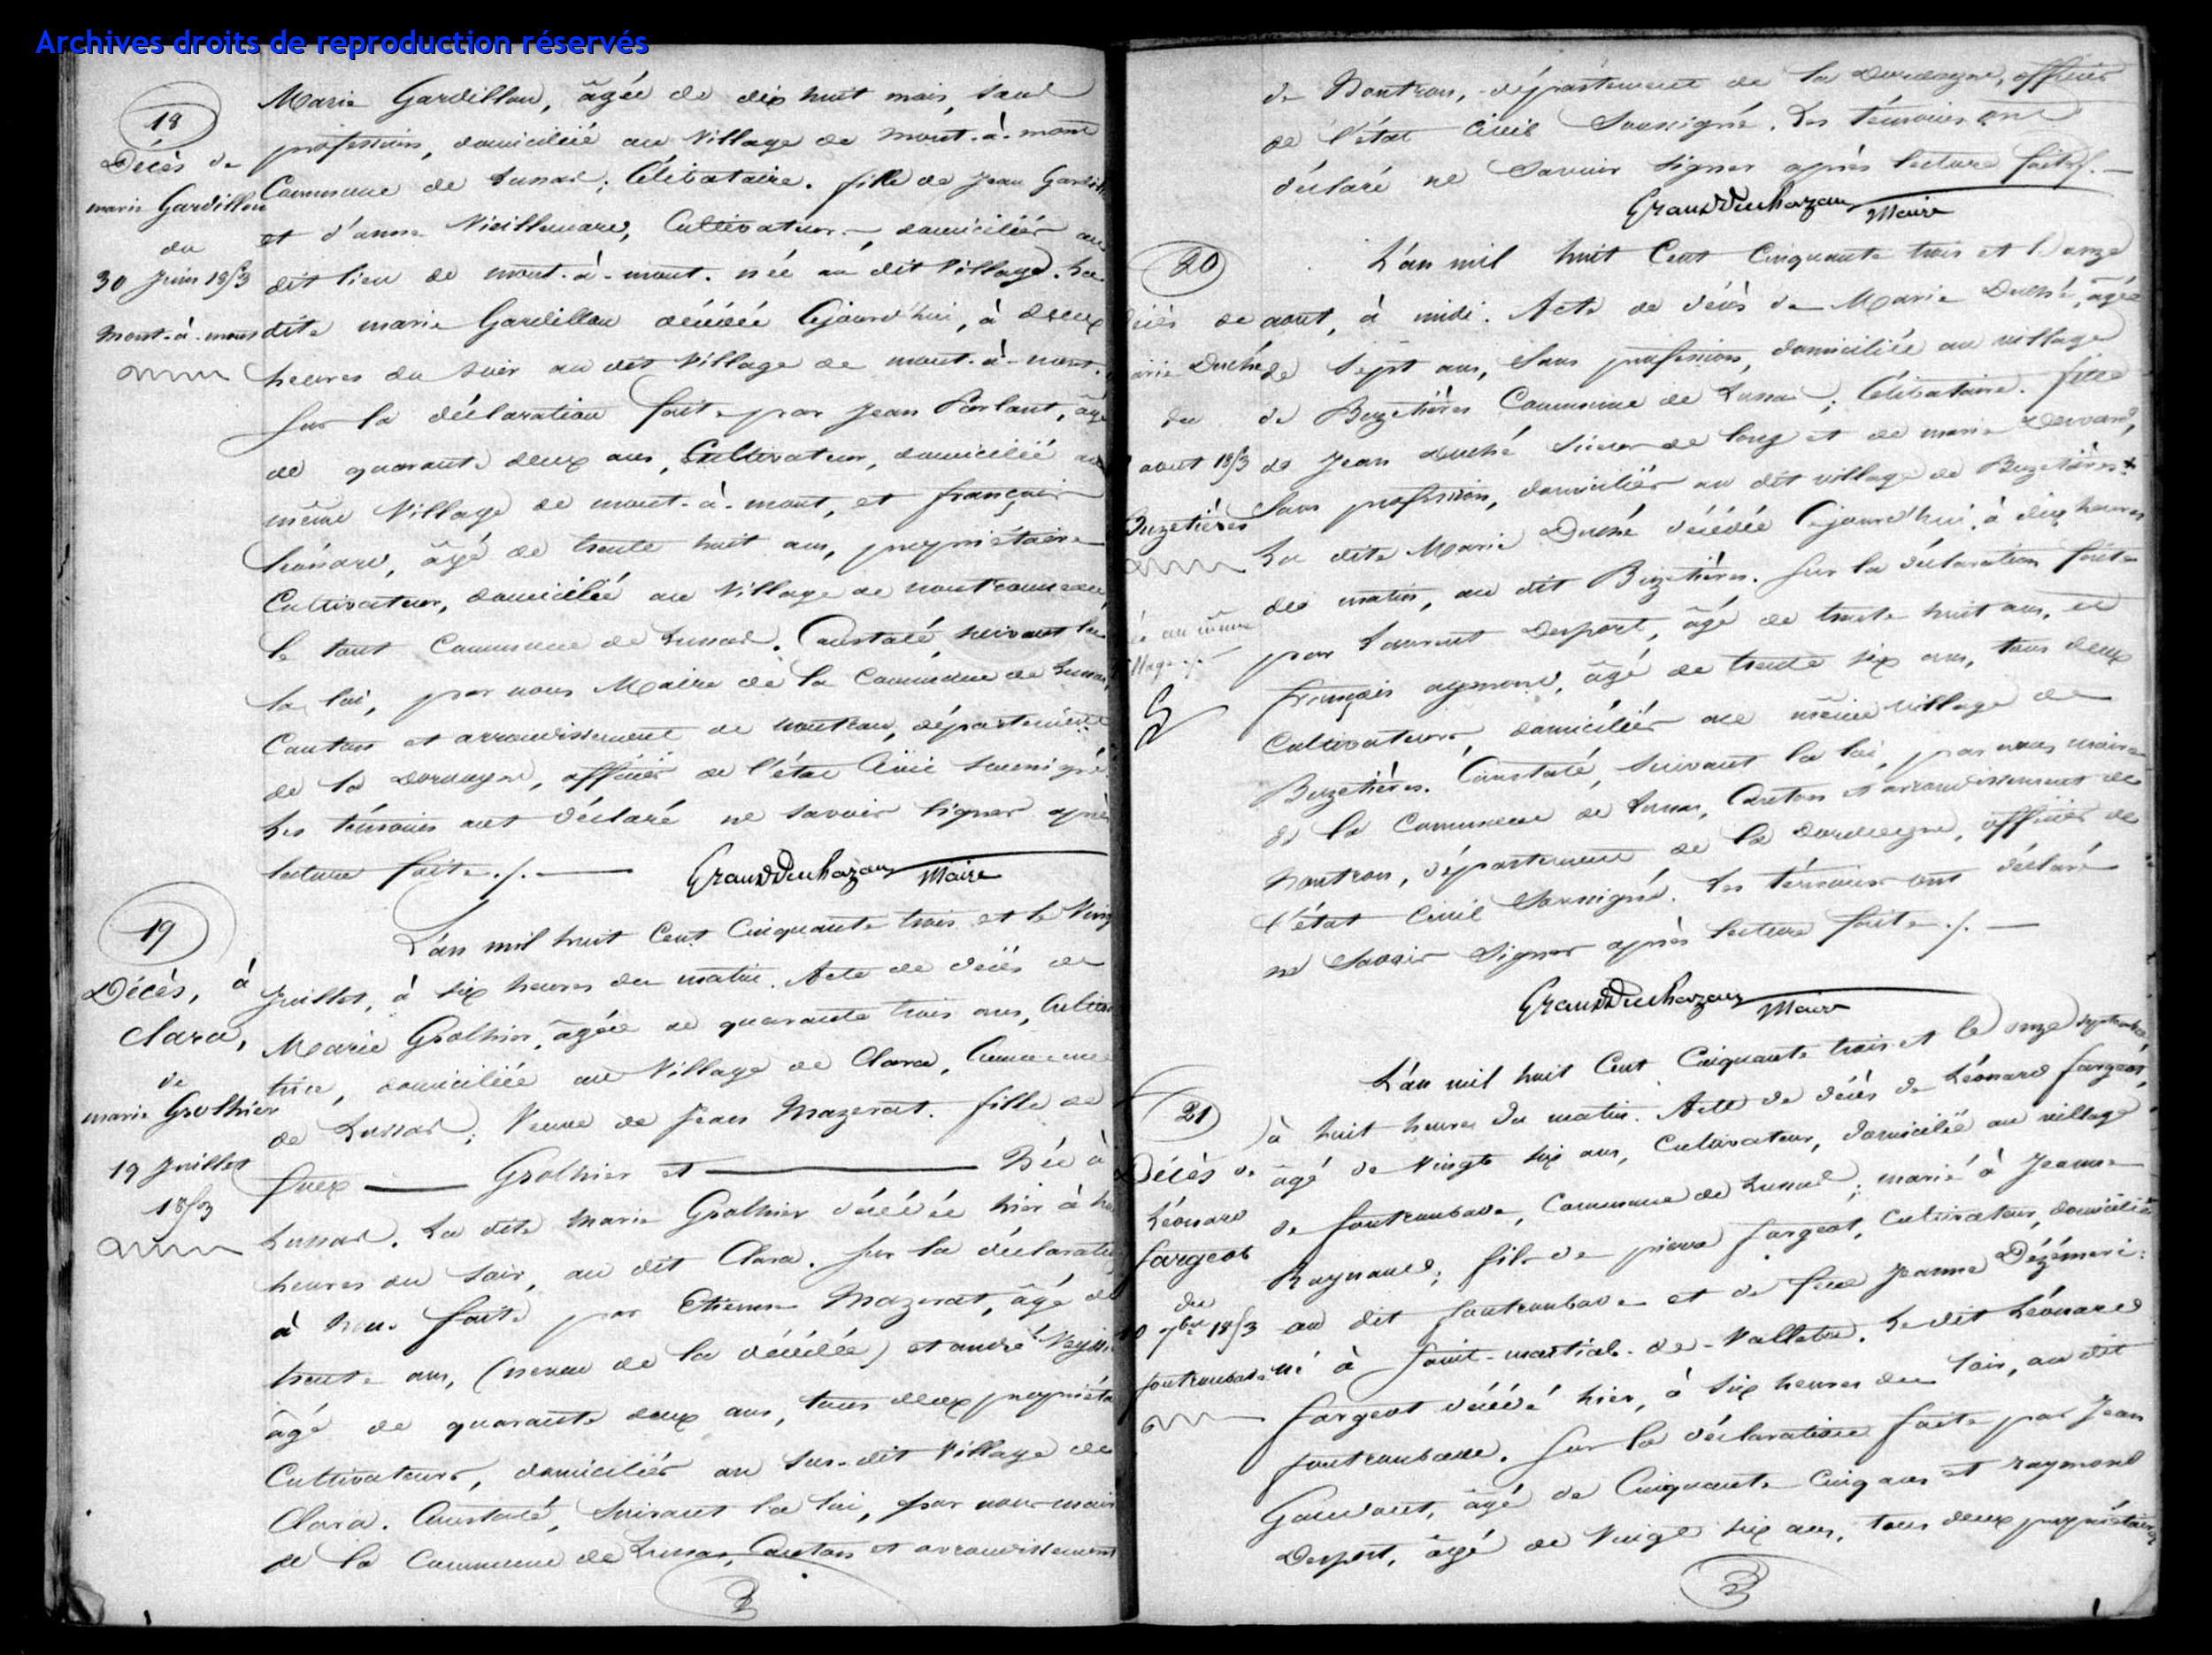 Archives droits de reproduction réservés
18
Décès de
marie Gardillou
du
30 Juin 1853
Mont-à-mont
Marie Gardillou, âgée de dix huit mois, sans
profession, domiciliée au Village de mont-à-mont
Commune de Lussas; Célibataire. fille de Jean
et d'anne Vieillemard, Cultivateurs, domiciliés au
dit lieu de mont-à-mont. née au dit Village. La
dite marie Gardillou décédée Cejourd'hui, à deux
heures du soir au dit Village de mont-à-mont.
Sur la déclaration faite par Jean Parlant, âgé
de quarante deux ans, Cultivateur, domicilié au
même Village de mont-à-mont, et françois
Léonard, âgé de trente huit ans, propriétaire
Cultivateur, domicilié au Village de
le tout Commune de Lussas. Constaté, suivant
la loi, par nous Maire de la Commune de Lussas,
Canton et arrondissement de nontron, département
de la Dordogne, officier de l'état Civil soussigné.
Les témoins ont déclaré ne savoir signer après
lecture faite ./.
GrandDuchazau Maire
19
Décès, à
Clara,
de
marie Grolhier
19 Juillet
1853
L'an mil huit Cent Cinquante trois et le
Juillet, à six heures du matin. Acte de décès de
Marie Grolhier, âgée de quarante trois ans, Cultiva
trice, domiciliée au Village de Clara, Commune
de Lussas; Veuve de Jean Mazerat. fille de
feux Grolhier et Née à
Lussas. La dite Marie Grolhier décédée hier à
heures du soir, au dit Clara. Sur la déclaration
à nous faite par Etienne Mazerat, âgé de
trente ans, (neveu de la décédée) et andré
âgé de quarante deux ans, tous deux
Cultivateurs, domiciliés au sus-dit Village de
Clara. Constaté, suivant la loi, par nous maire
de la Commune de Lussas, Canton et arrondissement
de Nontron, département de la Dordogne, officier
de l'état Civil Soussigné. Les témoins ont
déclaré ne Savoir signer après lecture faite ./.
GrandDuchazau Maire
20
de
Duché
du
août 1853
Buzetières
au même
L'an mil huit Cent Cinquante trois et le onze
aout, à midi. Acte de décès de Marie Duché, âgée
de Sept ans, Sans profession, domiciliée au village
de Buzetières Commune de Lussas; Célibataire. fille
de Jean Duché Scieur de long et de marie
Sans profession, domiciliés au dit village de Buzetières
La dite Marie Duché décédée Cejourd'hui, à dix heures
du matin, au dit Buzetières. Sur la déclaration faite
par Laurent Desport, âgé de trente huit ans, et
françois aymard, âgé de trente six ans, tous deux
Cultivateurs, domiciliés au même village de
Buzetières. Constaté, suivant la loi, par nous maire
de la Commune de Lussas, Canton et arrondissement de
Nontron, département de la Dordogne, officier de
l'état Civil Soussigné. Les témoins ont déclaré
ne Savoir Signer après lecture faite ./.
GrandDuchazau Maire
21
Décès de
Léonard
fargeot
du
7bre 1853
fontroubade
L'an mil huit Cent Cinquante trois et le onze septembre
à huit heures du matin. Acte de décès de Léonard fargeot,
âgé de Vingt six ans, Cultivateur, domicilié au village
de fontroubade, Commune de Lussas; marié à Jeanne
Raynaud; fils de pierre fargeot, Cultivateur, domicilié
au dit fontroubade et de feue Jeanne Dézémeri:
né à Saint-martial-de-Vallette. Le dit Léonard
fargeot décédé hier, à six heures du soir, au dit
fontroubade. Sur la déclaration faite par Jean
âgé de Cinquante Cinq ans et raymond
Desport, âgé de Vingt six ans, tous deux propriétaires